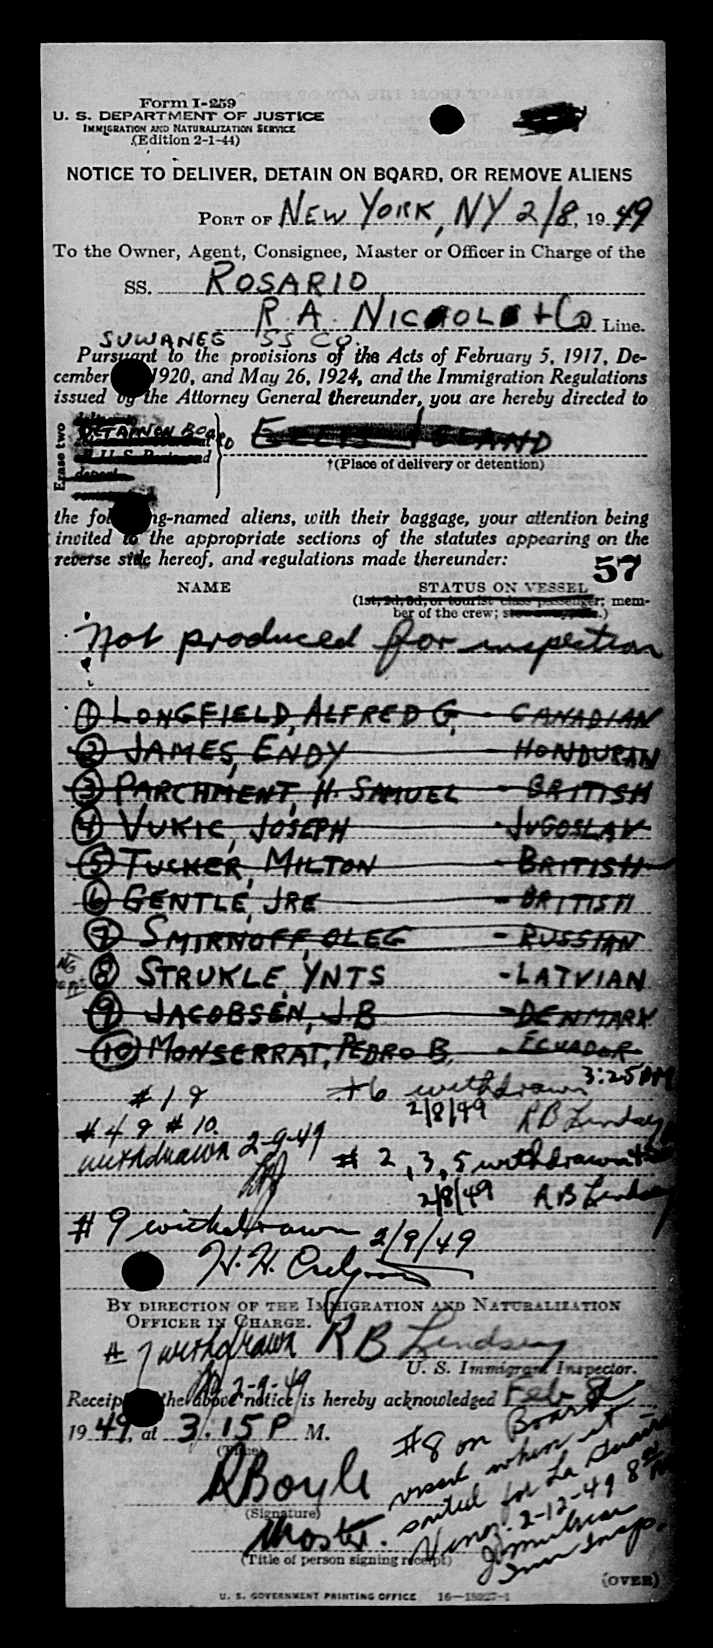 Form I-259
U. S. DEPARTMENT OF JUSTICE
IMMIGRATION AND NATURALIZATION SERVICE
(Edition 2-1-44)
NOTICE TO DELIVER, DETAIN ON BOARD, OR REMOVE ALIENS
PORT OF NEW YORK, NY 2/8, 1949
To the Owner, Agent, Consignee, Master or Officer in Charge of the
SS. ROSARIO
R. A. NICHOLS + Co Line.
SUWANEE SS CO.
Pursuant to the provisions of the Acts of February 5, 1917, De-
cember 1920, and May 26, 1924, and the Immigration Regulations
issued by the Attorney General thereunder, you are hereby directed to
Erase two
DETAIN ON BOARD
ELLIS ISLAND
†(Place of delivery or detention)
the following-named aliens, with their baggage, your attention being
invited to the appropriate sections of the statutes appearing on the
reverse side hereof, and regulations made thereunder:
57
NAME STATUS ON VESSEL
(1st, 2d, 3d, or tourist class passenger; mem-
ber of the crew;
Not produced for inspection
① LONGFIELD, ALFRED G. - CANADIAN
② JAMES, ENDY - HONDURAN
③ PARCHMENT, H. SAMUEL - BRITISH
④ VUKIC, JOSEPH - JUGOSLAV
⑤ TUCKER, MILTON - BRITISH
⑥ GENTLE, JRE - BRITISH
⑦ SMIRNOFF, OLEG - RUSSIAN
⑧ STRUKLE, YNTS - LATVIAN
⑨ JACOBSEN, J B - DENMARK
⑩ MONSERRAT, PEDRO B. - ECUADOR
3:25 PM
# 1 9 #6 withdrawn
2/8/49 RB Lindsay
# 4 9 # 10
withdrawn 2-9-49
# 2, 3, 5 withdrawn
2/8/49 RB Lindsay
# 9 withdrawn 2/9/49
H. H.
BY DIRECTION OF THE IMMIGRATION AND NATURALIZATION
OFFICER IN CHARGE.
# 7 withdrawn RB Lindsay
2-9-49
U. S. Immigrant Inspector.
Receipt of the above notice is hereby acknowledged Feb 8
1949, at 3.15 P M.
(Time)
R Boyle
(Signature)
Master.
(Title of person signing receipt)
#8 on Board
vessel when it
sailed for La Guaira
Venez. 2-12-49
Imm Insp.
(OVER)
U. S. GOVERNMENT PRINTING OFFICE 16—18027-1